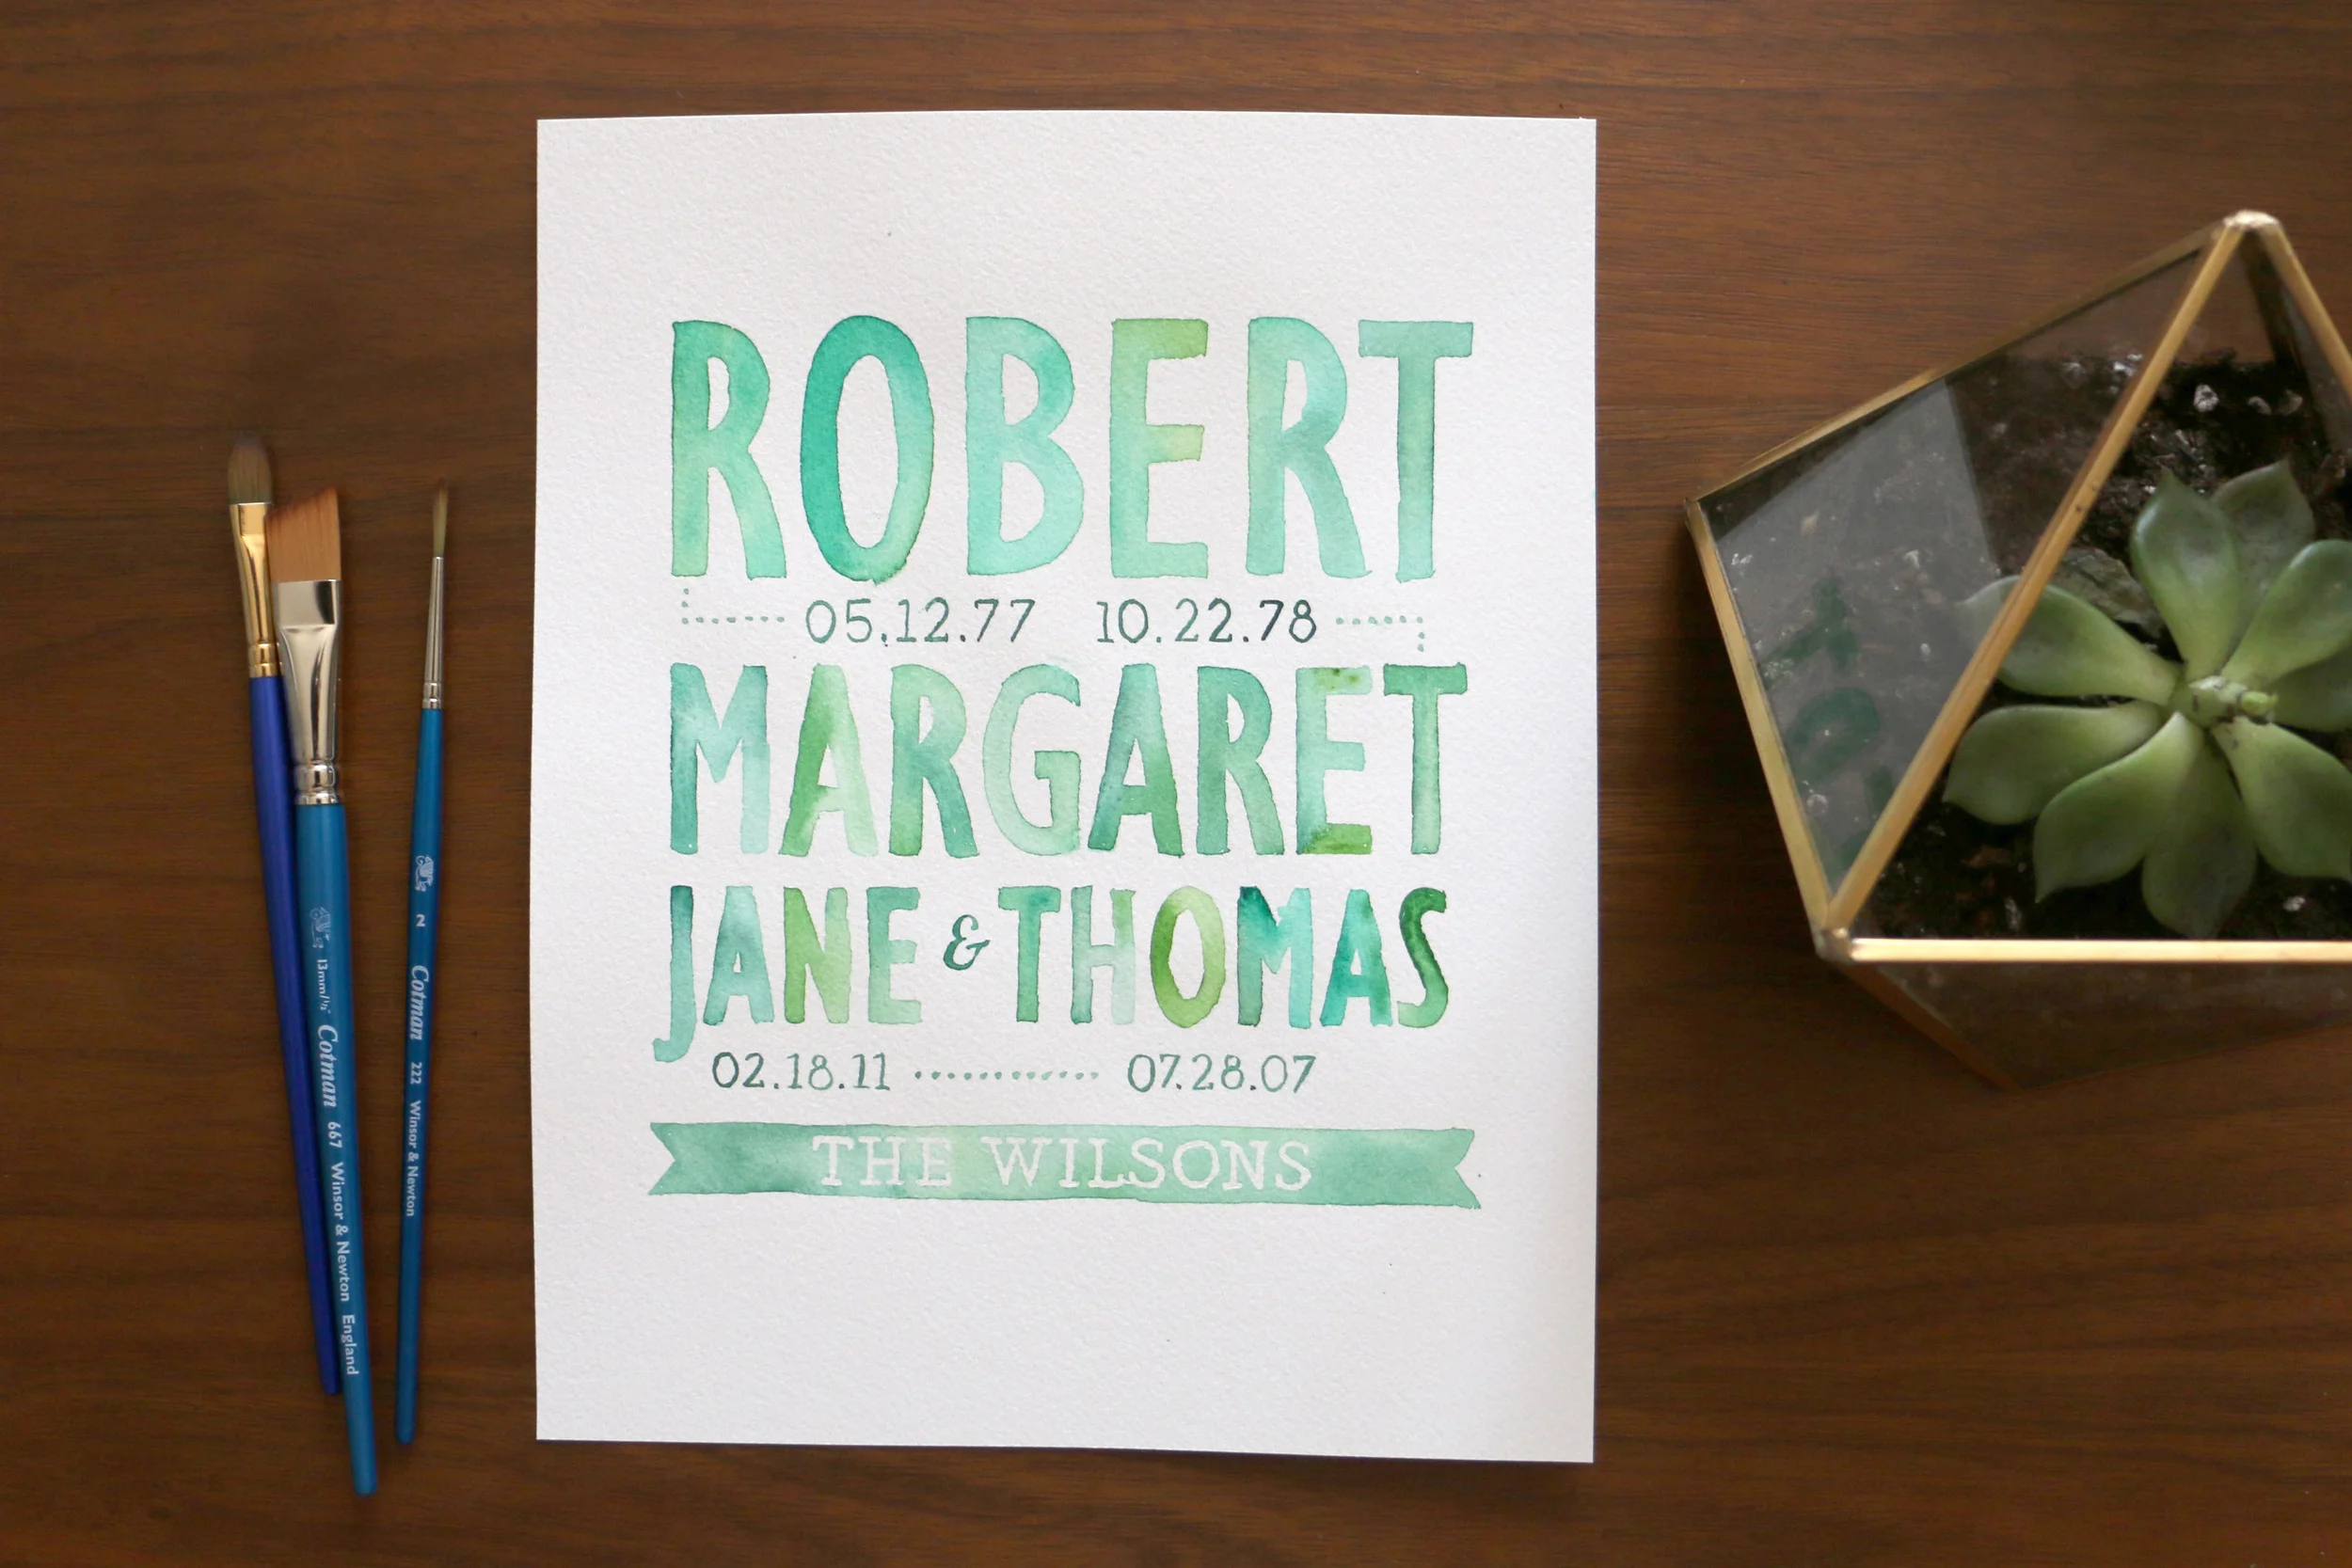 ROBERT
05.12.77 10.22.78
MARGARET
JANE & THOMAS
02.18.11 07.28.07
THE WILSONS
Cotman 667 Winsor & Newton England
2 Cotman 222 Winsor & Newton